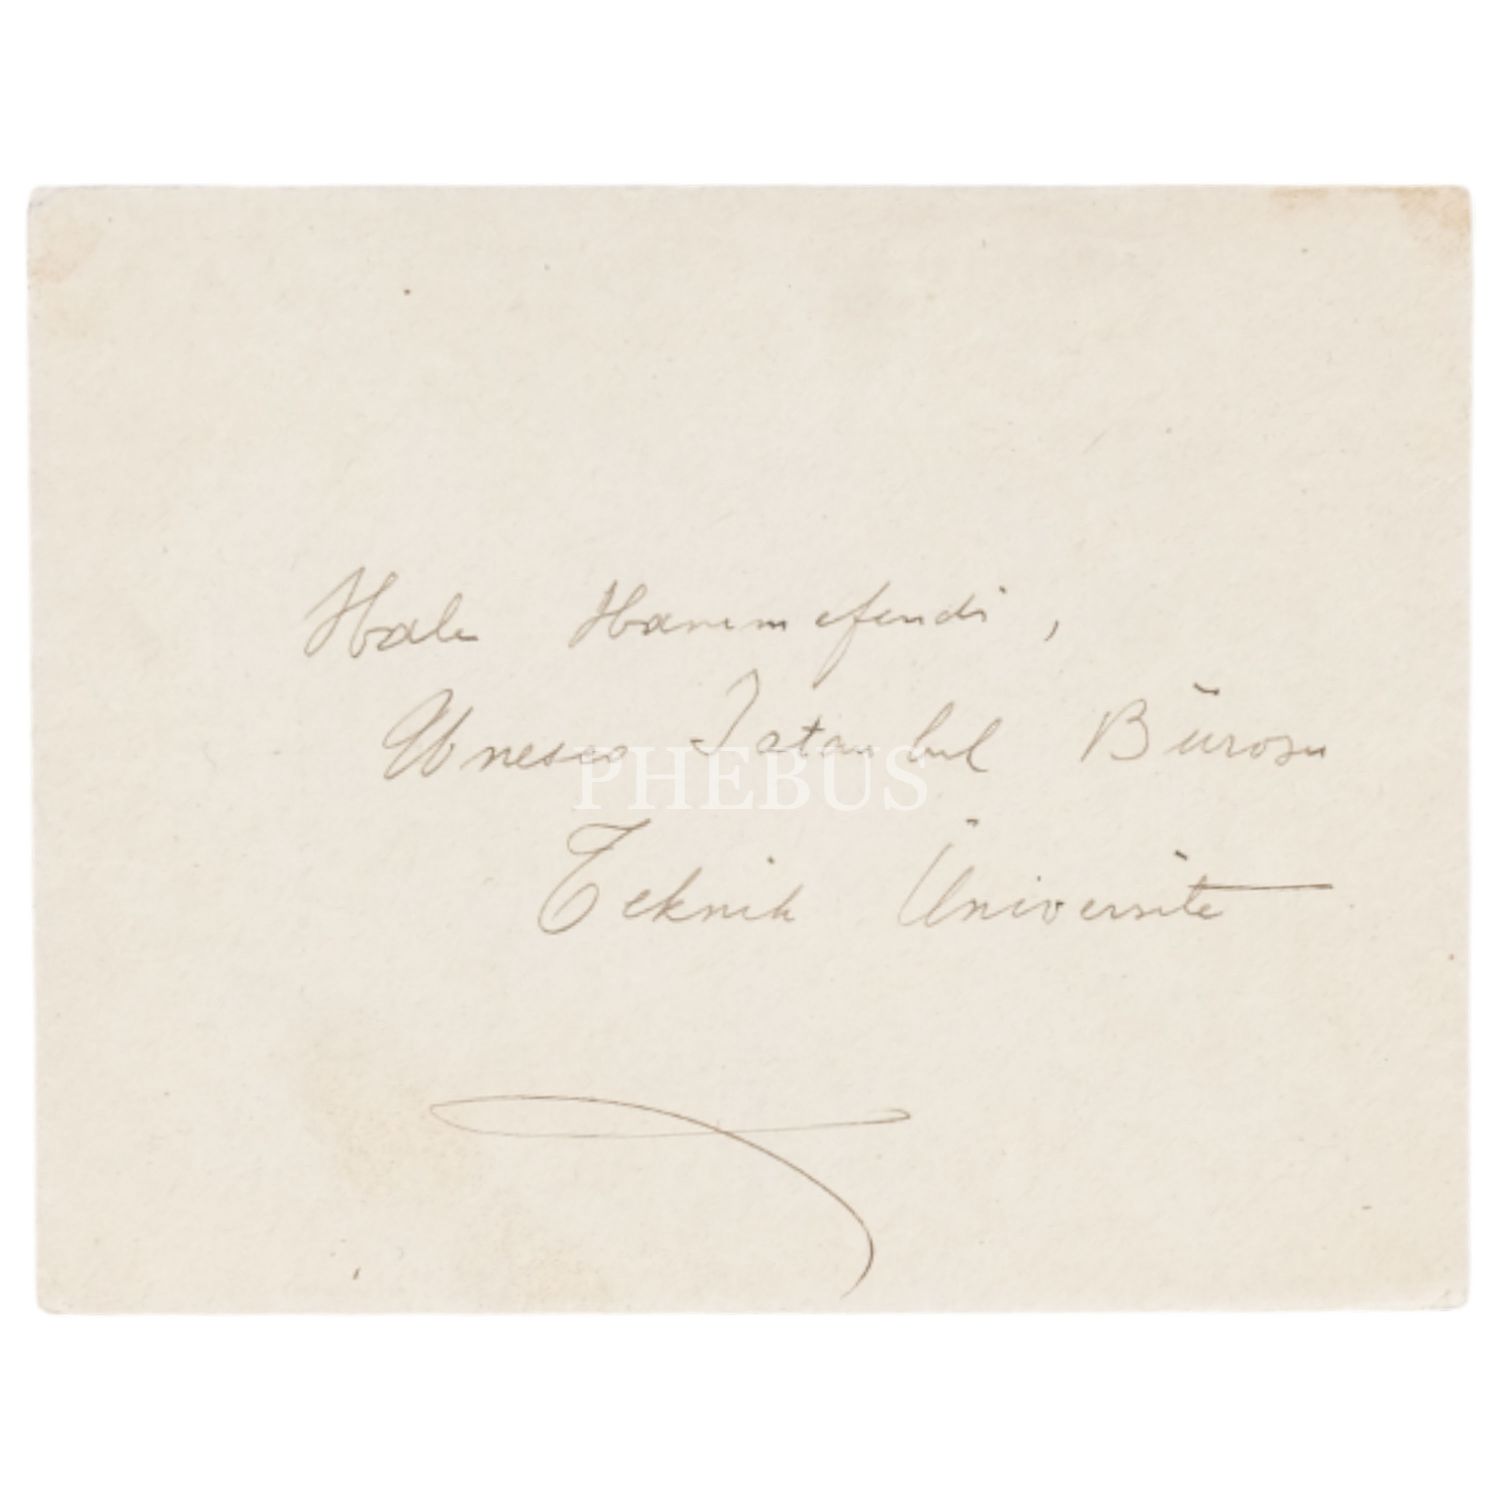 Hale Hanımefendi,
Unesco İstanbul Bürosu
PHEBUS
Teknik Üniversite